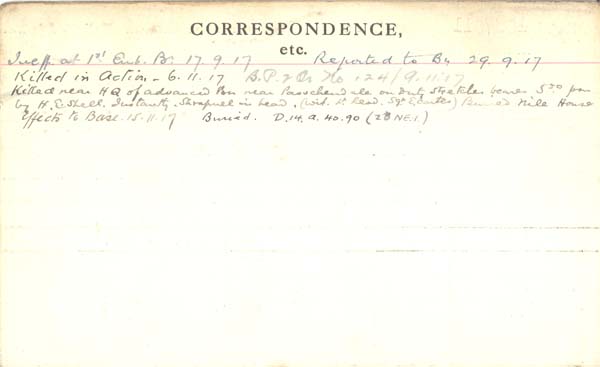 CORRESPONDENCE,
etc.
Ineff at 1st Emb. Bn 17.9.17 Reported to Bn 29.9.17
Killed in Action - 6.11.17 B.P. 2 Or No 124/9.11.17
Killed near HQ of advanced Bn near Passchendaele on duty stretcher bearer 5.30 pm
by H.E. Shell. Instantly. Shrapnel in head. (Wit. Lt Read, Sgt Center) Buried Nile House
Effects to Base. 15.11.17 Buried. D.14.a.40.90 (28 NE.1.)